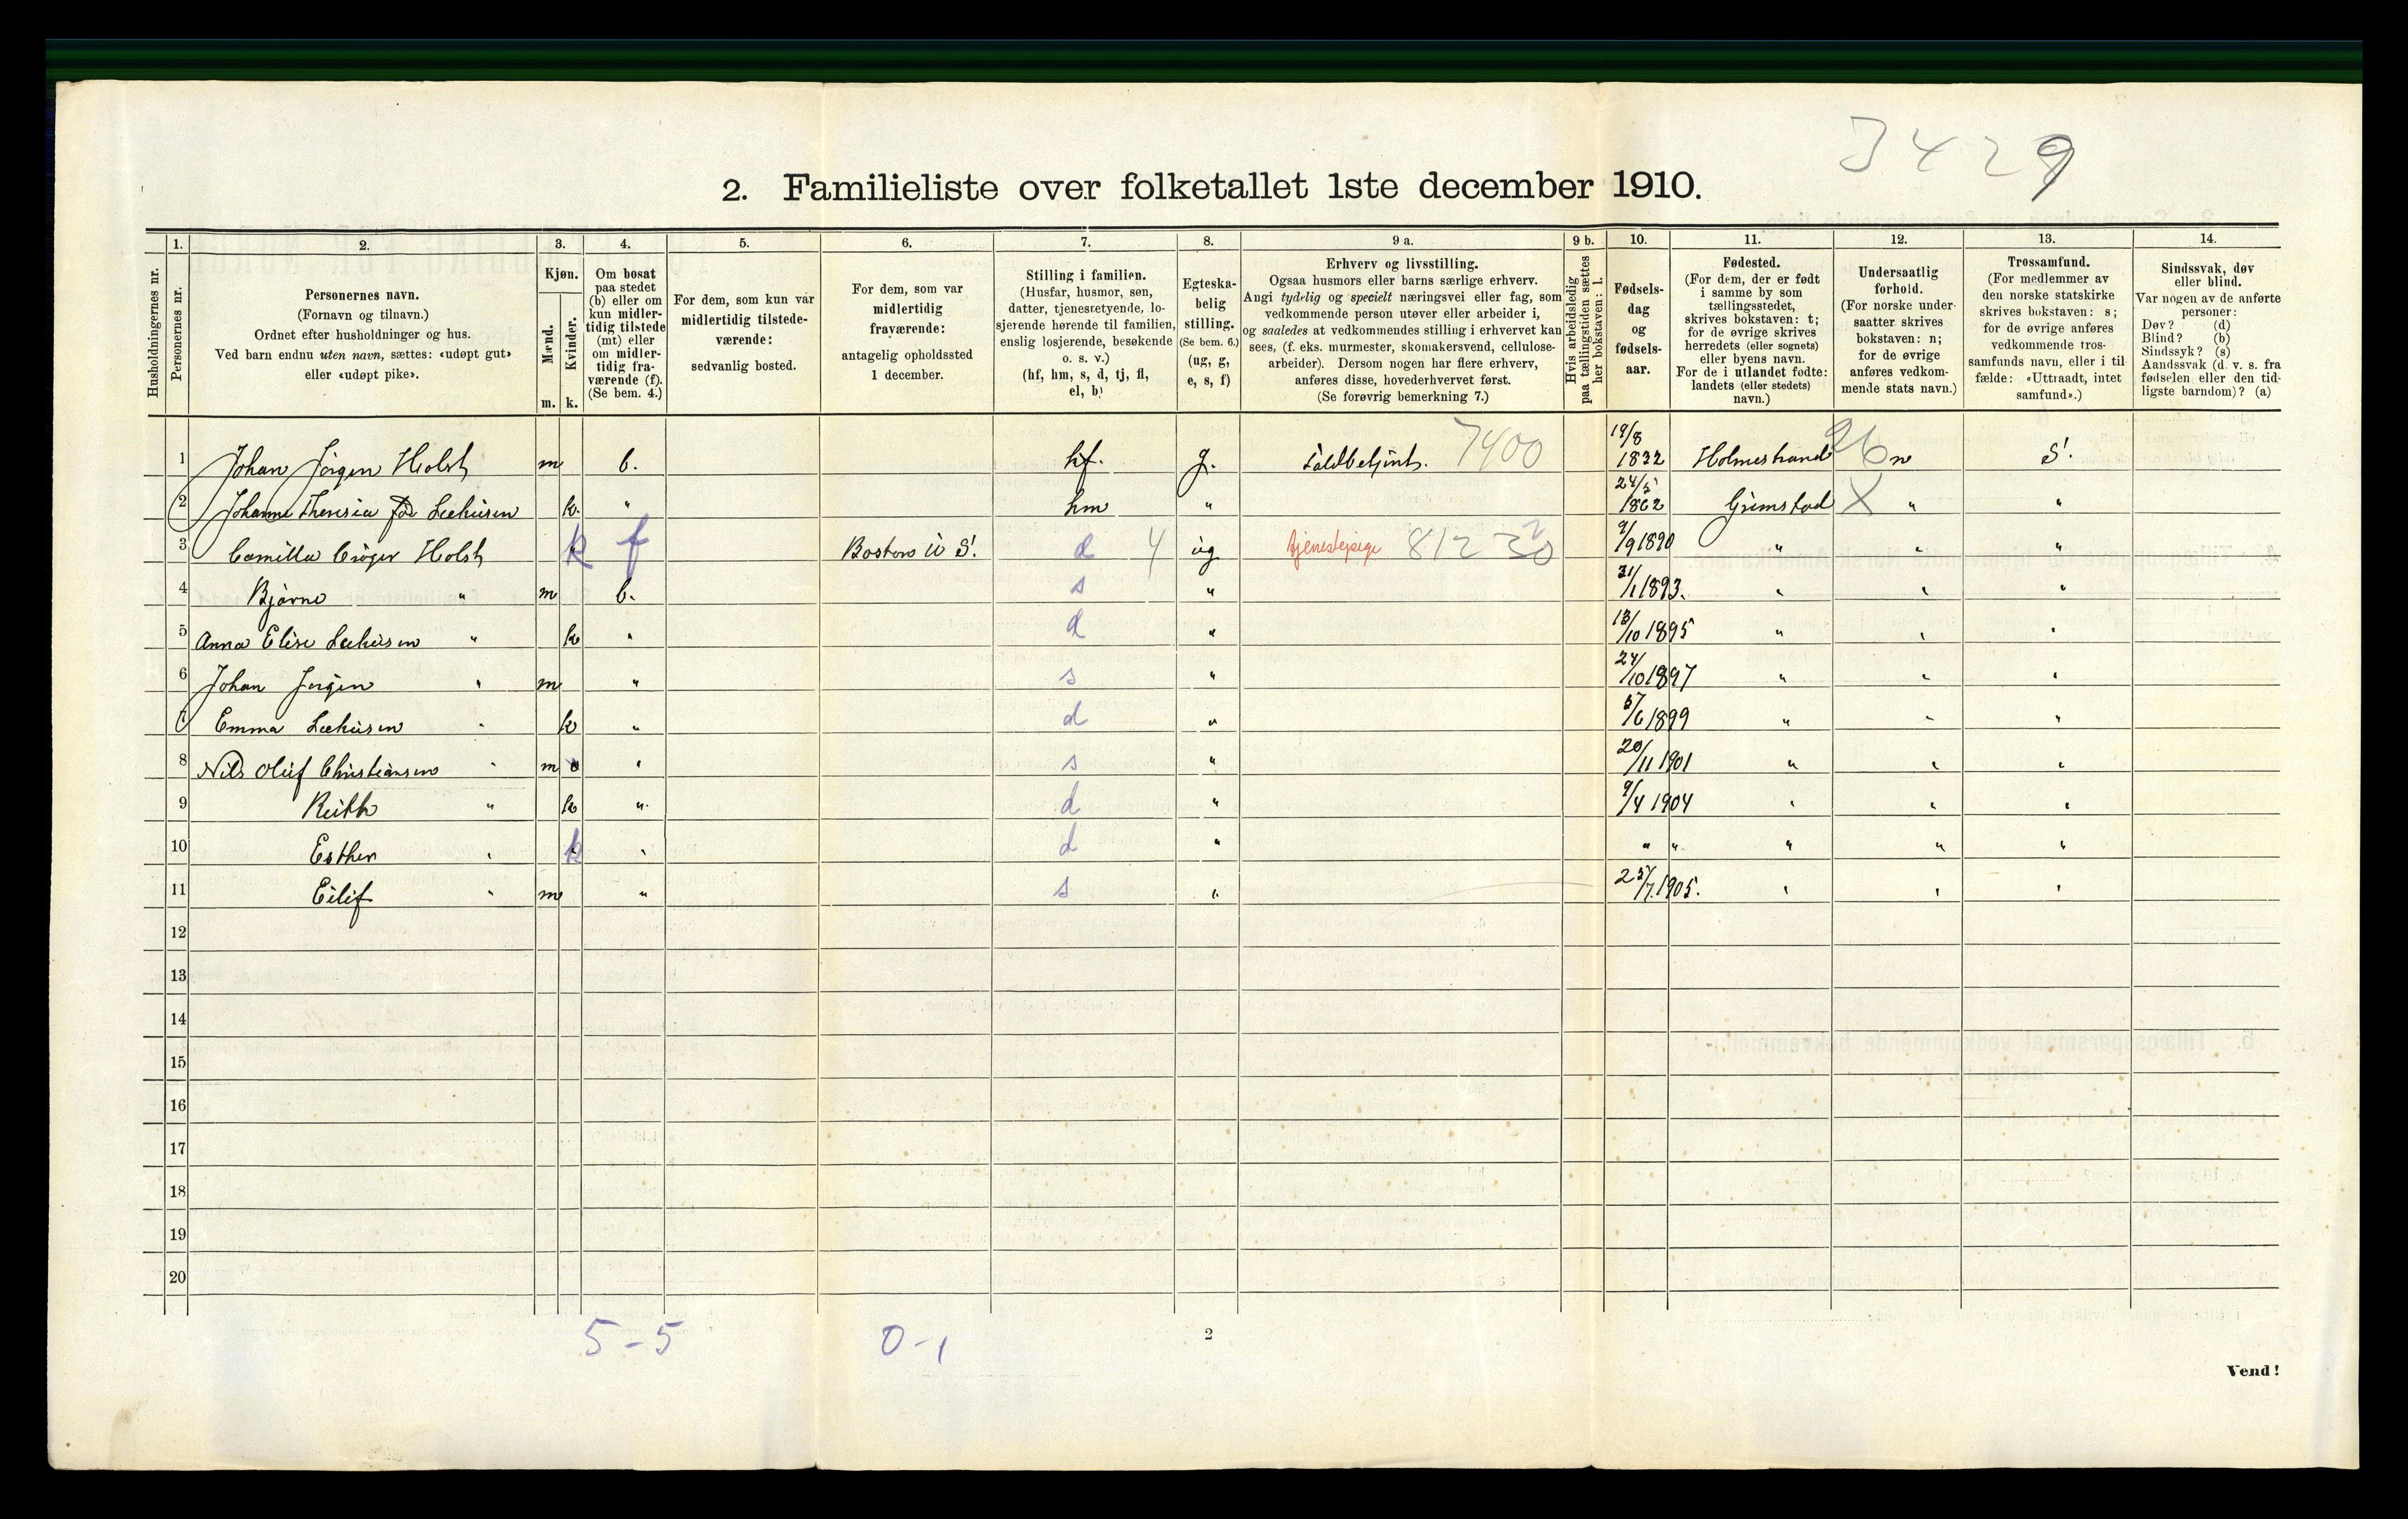 3429
2. Familieliste over folketallet 1ste december 1910.
1. 2. 3. 4. 5. 6. 7. 8. 9 a. 9 b. 10. 11. 12. 13. 14.
Husholdningernes nr.
Personernes nr.
Personernes navn.
(Fornavn og tilnavn.)
Ordnet efter husholdninger og hus.
Ved barn endnu uten navn, sættes: «udøpt gut»
eller «udøpt pike».
Kjøn.
Mænd.
Kvinder.
m. k.
Om bosat
paa stedet
(b) eller om
kun midler-
tidig tilstede
(mt) eller
om midler-
tidig fra-
værende (f).
(Se bem. 4.)
For dem, som kun var
midlertidig tilstede-
værende:
sedvanlig bosted.
For dem, som var
midlertidig
fraværende:
antagelig opholdssted
1 december.
Stilling i familien.
(Husfar, husmor, søn,
datter, tjenestetyende, lo-
sjerende hørende til familien,
enslig losjerende, besøkende
o. s. v.)
(hf, hm, s, d, tj, fl,
el, b)
Egteska-
belig
stilling.
(Se bem. 6.)
(ug, g,
e, s, f)
Erhverv og livsstilling.
Ogsaa husmors eller barns særlige erhverv.
Angi tydelig og specielt næringsvei eller fag, som
vedkommende person utøver eller arbeider i,
og saaledes at vedkommendes stilling i erhvervet kan
sees, (f. eks. murmester, skomakersvend, cellulose-
arbeider). Dersom nogen har flere erhverv,
anføres disse, hovederhvervet først.
(Se forøvrig bemerkning 7.)
Hvis arbeidsledig
paa tællingstiden sættes
her bokstaven: l.
Fødsels-
dag
og
fødsels-
aar.
Fødested.
(For dem, der er født
i samme by som
tællingsstedet,
skrives bokstaven: t;
for de øvrige skrives
herredets (eller sognets)
eller byens navn.
For de i utlandet fødte:
landets (eller stedets)
navn.)
Undersaatlig
forhold.
(For norske under-
saatter skrives
bokstaven: n;
for de øvrige
anføres vedkom-
mende stats navn.)
Trossamfund.
(For medlemmer av
den norske statskirke
skrives bokstaven: s;
for de øvrige anføres
vedkommende tros-
samfunds navn, eller i til-
fælde: «Uttraadt, intet
samfund».)
Sindssvak, døv
eller blind.
Var nogen av de anførte
personer:
Døv? (d)
Blind? (b)
Sindssyk? (s)
Aandssvak (d. v. s. fra
fødselen eller den tid-
ligste barndom)? (a)
1 Johan Jörgen Holst m b. hf. g. Toldbetjent. 7400 19/8 1832 Holmestrand 26 n S!
2 Johanne Theresia k. " hm " 24/5 1862 Grimstad X " "
3 Camilla Cröger Holst k f Boston U S! d 4 ug tjenestepige 812 9/9 1890 " " "
4 Bjarne " m b. s " 31/1 1893. " " "
5 Anna Elise " k " d " 13/10 1895 " " "
6 Johan Jörgen " m " s " 24/10 1897 " " "
7 Emma " k " d " 5/6 1899 " " "
8 Nils Oluf Christiansen " m " s " 20/11 1901 " " "
9 Ruth " k " d " 9/4 1904 " " "
10 Esther " k " d " " " " " "
11 Eilif " m " s " 25/7 1905. " " "
12
13
14
15
16
17
18
19
20
5-5 0-1
2
Vend!